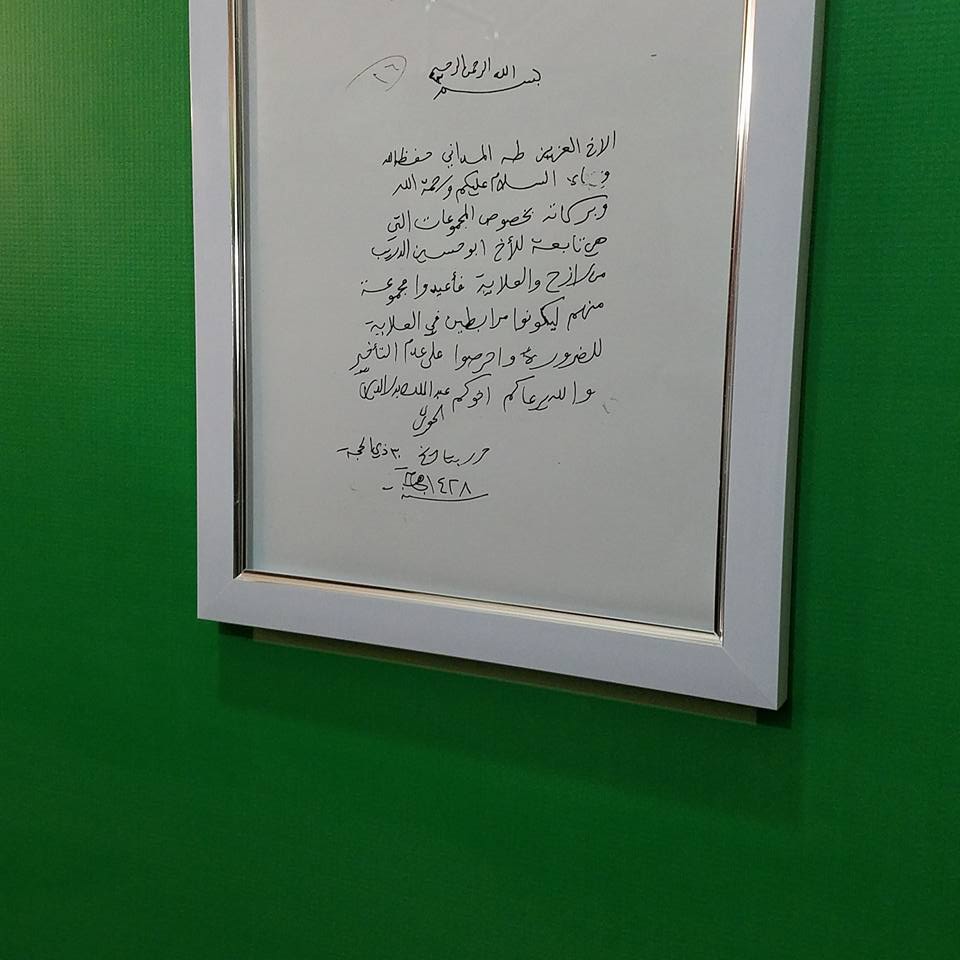 بسم الله الرحمن الرحيم
الاخ العزيز طه المداني حفظه الله
السلام عليكم ورحمة الله
وبركاته بخصوص المجموعات التي
هي تابعة للأخ ابو حسين الدريب
من رازح والعلاية فأعيدوا مجموعة
منهم ليكونوا مرابطين في العلاية
للضرورية واحرصوا على عدم التأخير
والله يرعاكم اخوكم عبد الملك بدر الدين
الحوثي
حرر بتاريخ ٣٠ ذي الحجة
١٤٢٨